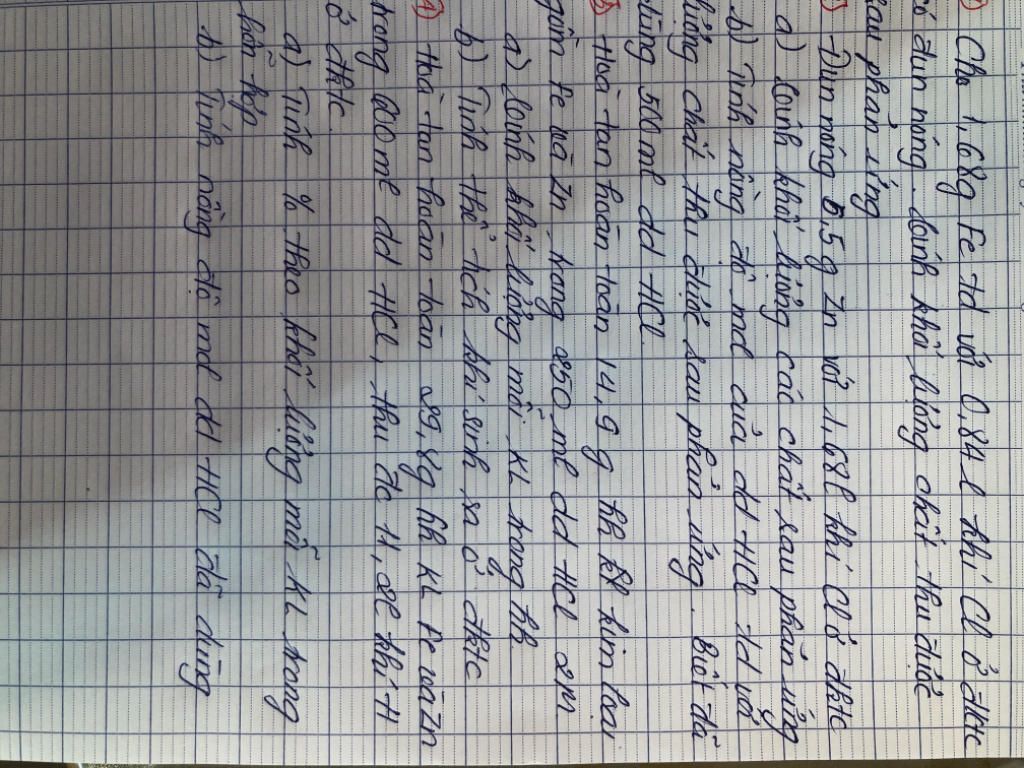 1) Cho 1,68g Fe td với 0,84 l khí Cl ở đktc
có đun nóng. Tính khối lượng chất thu được
sau phản ứng
Đun nóng 6,5g Zn với 1,68l khí Cl ở đktc
a) Tính khối lượng các chất sau phản ứng
b) Tính nồng độ mol của dd HCl td với
lượng chất thu được sau phản ứng. Biết đã
dùng 500ml dd HCl.
Hoà tan hoàn toàn 14,9 g hh kl kim loại
gồm Fe và Zn trong 250 ml dd HCl 2M
a) Tính khối lượng mỗi KL trong hh.
b) Tính thể tích khí sinh ra ở đktc
4) Hoà tan hoàn toàn 29,8g hh KL Fe và Zn
trong 600ml dd HCl, thu đc 11,2l khí H
ở đktc.
a) Tính % theo khối lượng mỗi KL trong
hỗn hợp
b) Tính nồng độ mol dd HCl đã dùng